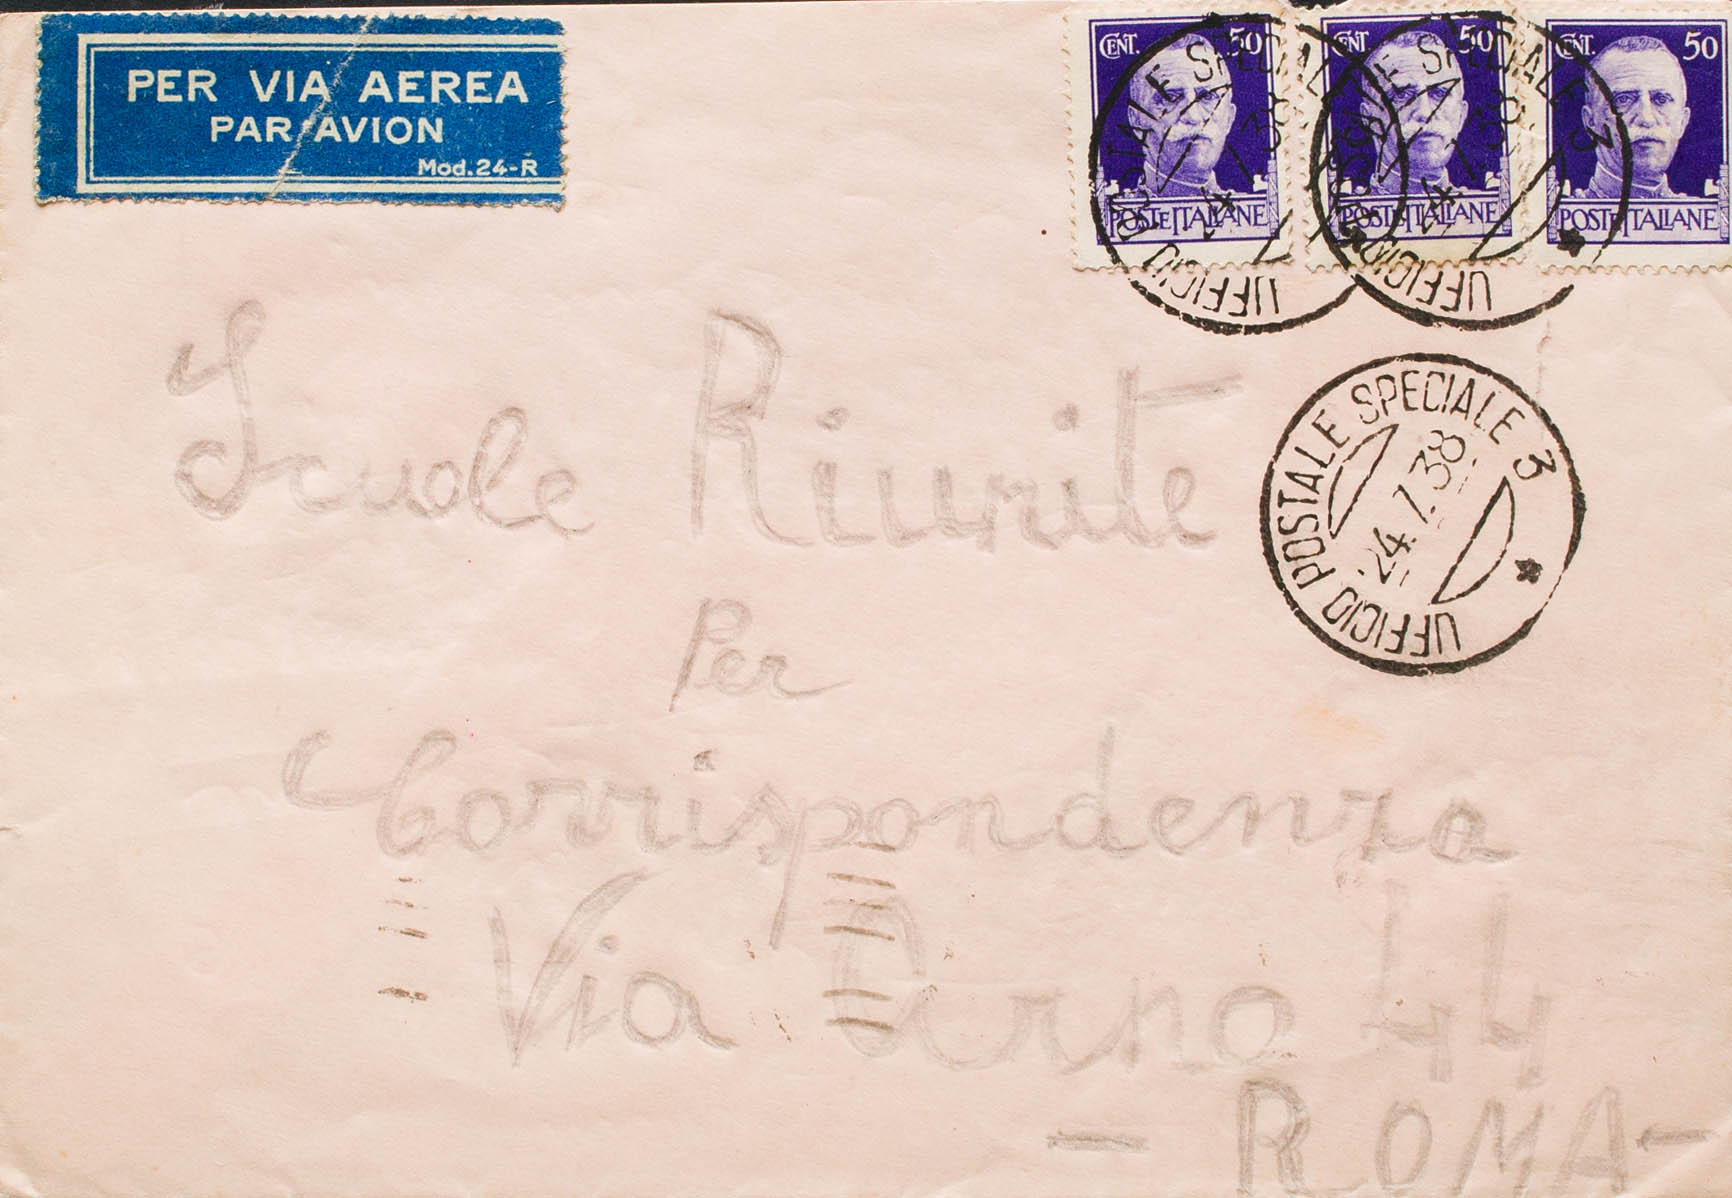 PER VIA AEREA
PAR AVION
Mod.24-R
CENT. 50
POSTE ITALIANE
CENT. 50
POSTE ITALIANE
CENT. 50
POSTE ITALIANE
UFFICIO POSTALE SPECIALE 3
24.7.38
UFFICIO POSTALE SPECIALE 3
24.7.38
UFFICIO POSTALE SPECIALE 3
24.7.38
Scuole Riunite
Per
Corrispondenza
Via Arno 44
- ROMA -